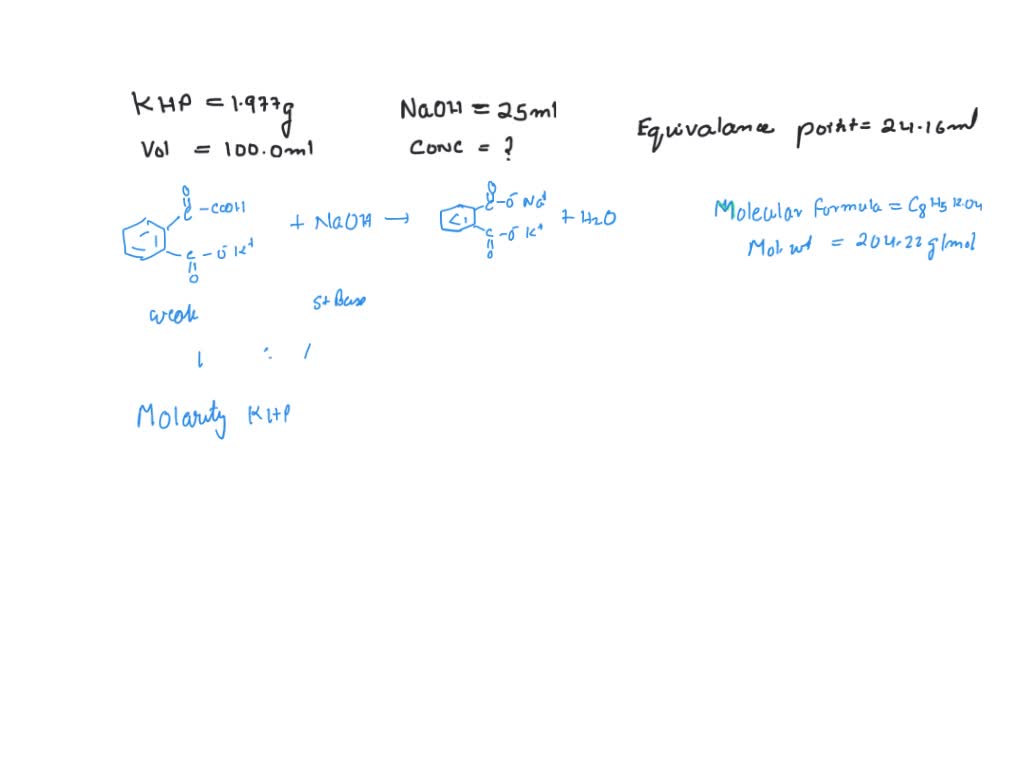 KHP = 1.977g
Vol = 100.0ml
NaOH = 25ml
conc = ?
Equivalance point = 24.16ml
O
C - COOH
C - O⁻ K⁺
O
+ NaOH →
O
C - O⁻ Na⁺
C - O⁻ K⁺
O
+ H2O
Molecular formula = C8H5KO4
Mol. wt = 204.22 g/mol
weak
st Base
1 : 1
Molarity KHP